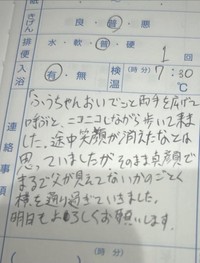 きげん 良・普・悪
排便 水・軟・普・硬 1回
入浴 有・無 検温 (時分) 7:30 ℃
連絡事項
「ふうちゃんおいでっと両手を広げて
呼ぶと、ニコニコしながら歩いて来ま
した。途中笑顔が消えたなとは
思っていましたが、そのまま真顔で
まるで父が見えてないかのごとく
横を通り過ぎていきました。
明日もよろしくお願いします。
(時分)